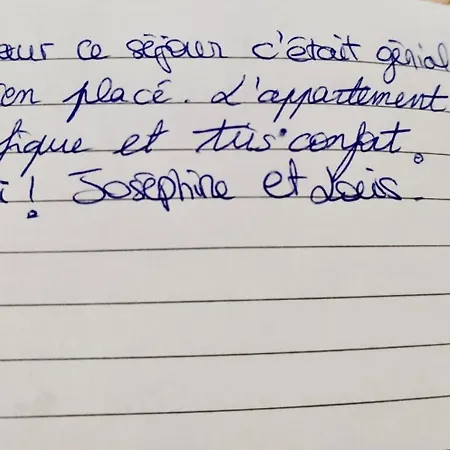 our ce séjour c'était génial
en placé. L'appartement
fique et très confort.
i! Joséphine et Loïs.